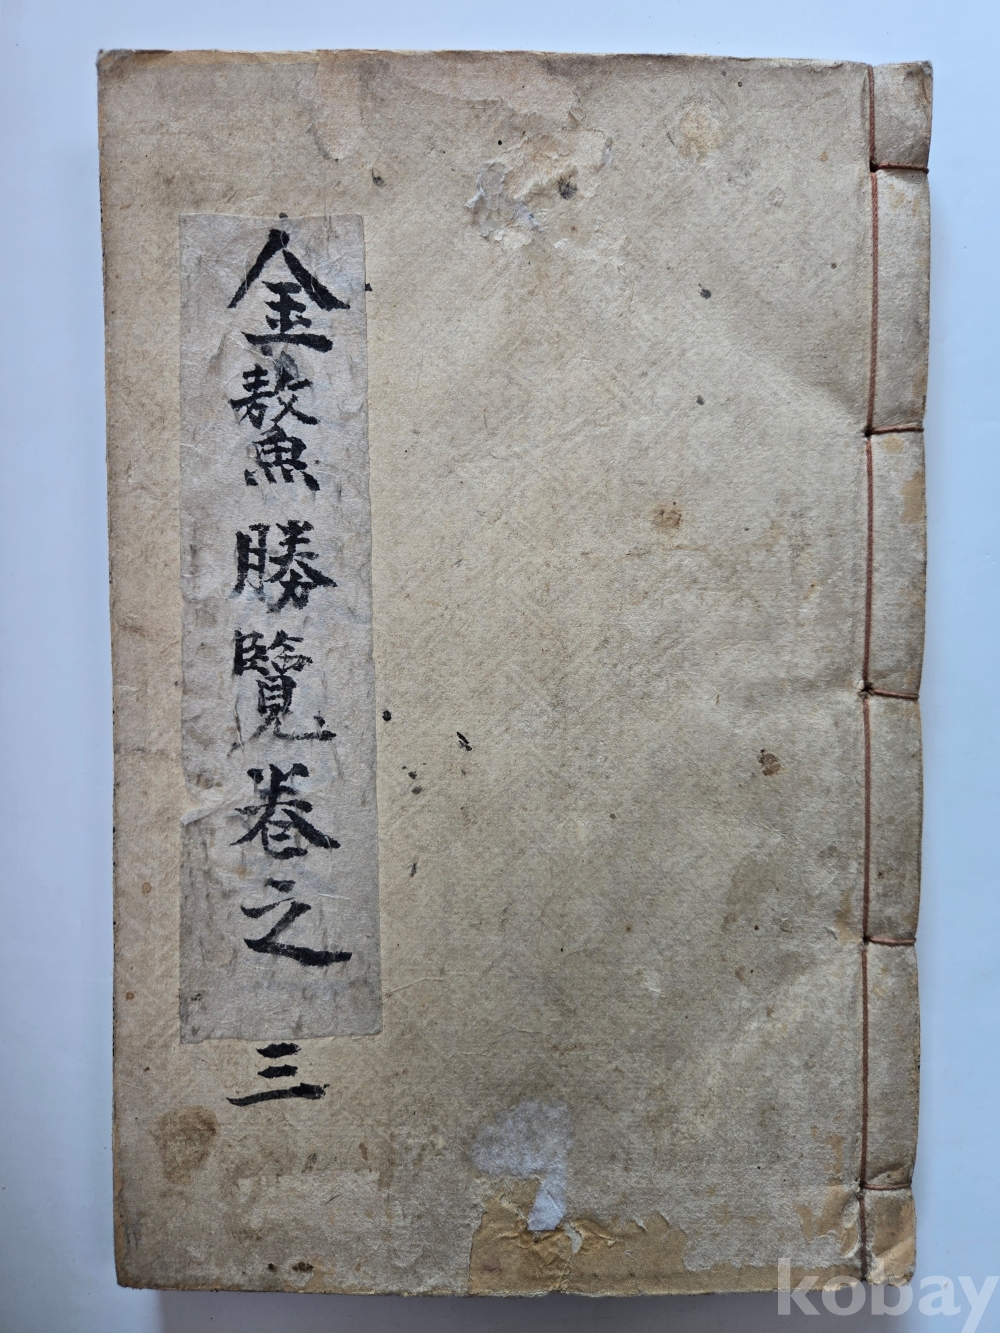 金鰲勝覽卷之三
kobay